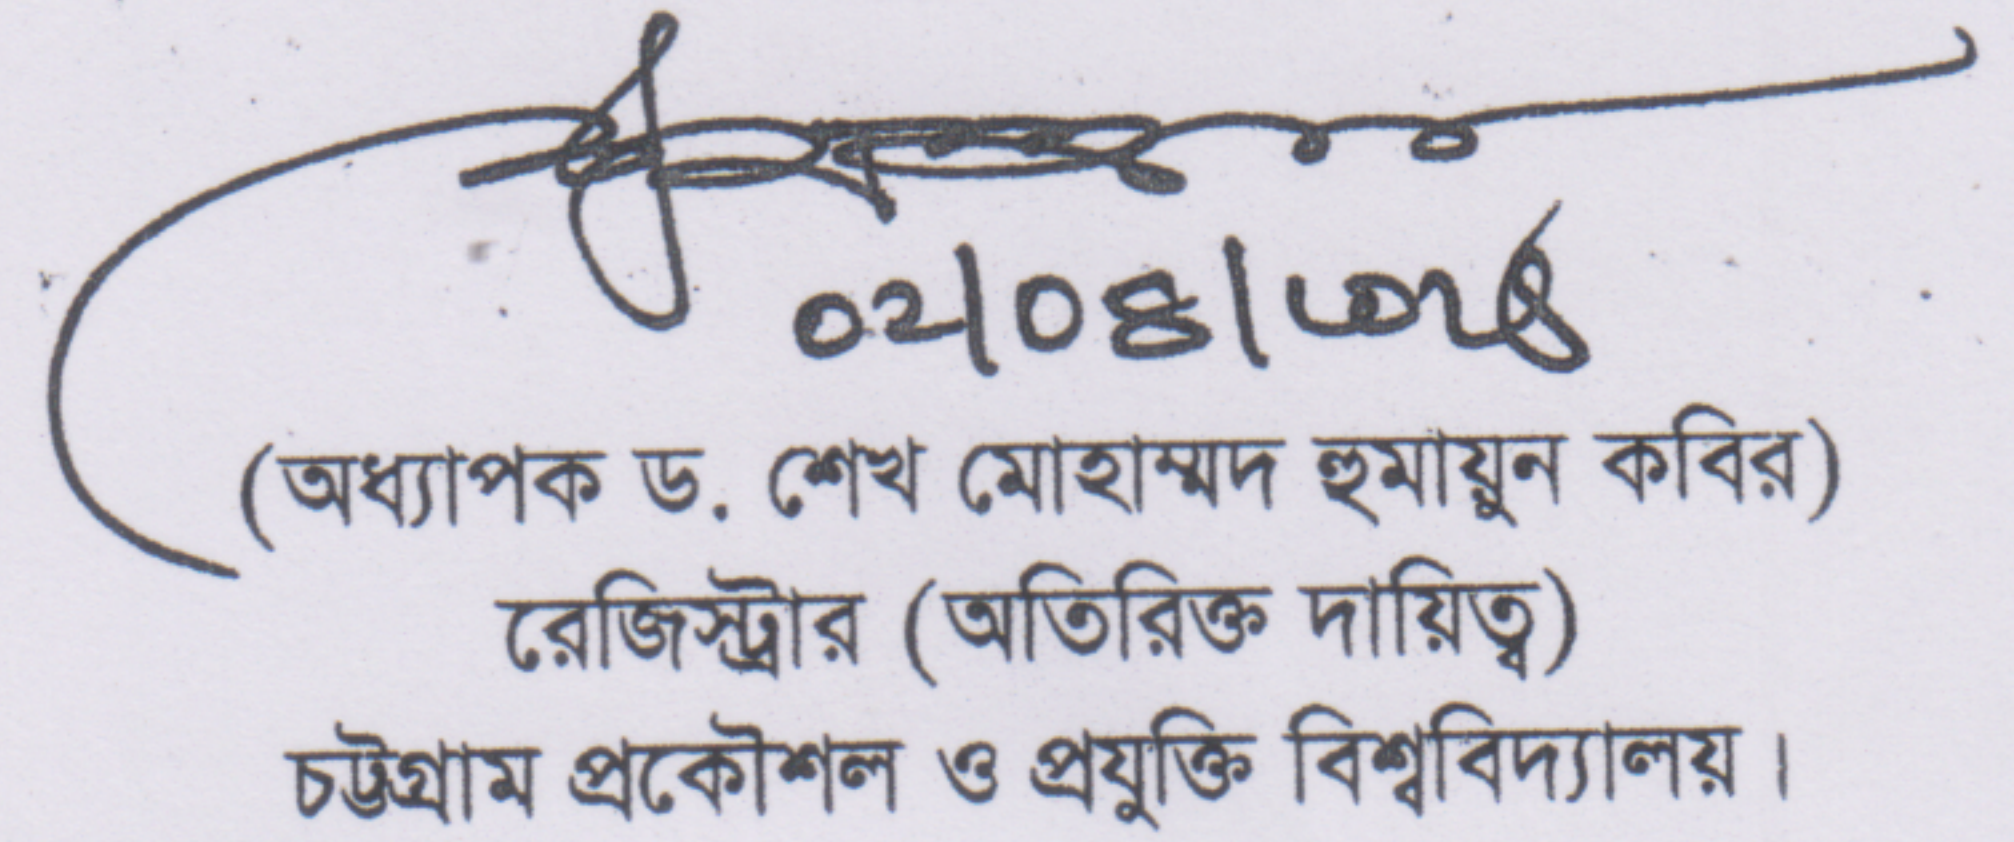 ০২/০৪/
(অধ্যাপক ড. শেখ মোহাম্মদ হুমায়ুন কবির)
রেজিস্ট্রার (অতিরিক্ত দায়িত্ব)
চট্টগ্রাম প্রকৌশল ও প্রযুক্তি বিশ্ববিদ্যালয়।